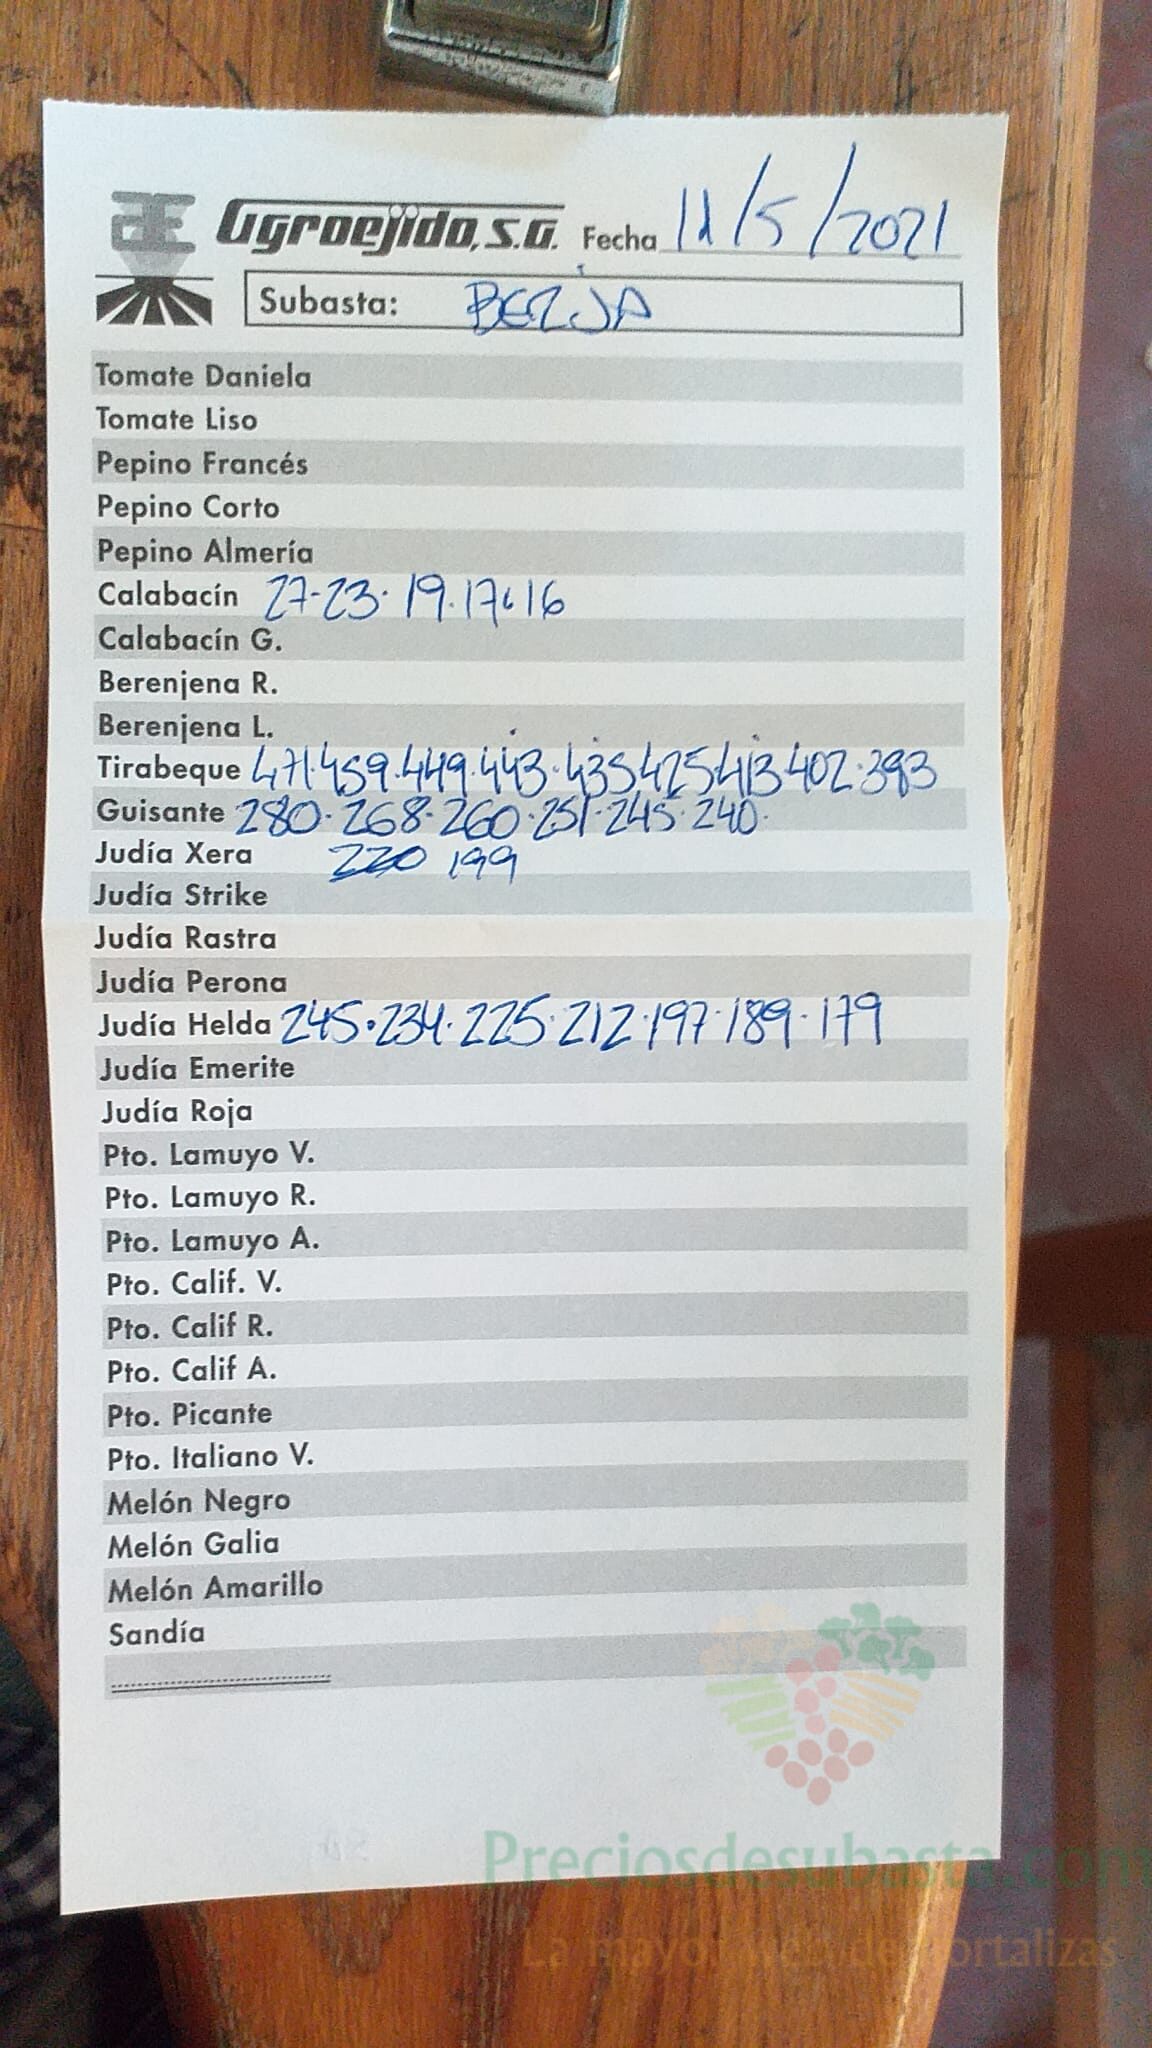 Agroejido, S.A. Fecha 11/5/2021
Subasta: BERJA
Tomate Daniela
Tomate Liso
Pepino Francés
Pepino Corto
Pepino Almería
Calabacín 27-23· 19·17·16
Calabacín G.
Berenjena R.
Berenjena L.
Tirabeque 471·459·449·443·435 425 413 402·393
Guisante 280·268·260·251·245·240·
Judía Xera 220 199
Judía Strike
Judía Rastra
Judía Perona
Judía Helda 245·234·225·212·197·189·179
Judía Emerite
Judía Roja
Pto. Lamuyo V.
Pto. Lamuyo R.
Pto. Lamuyo A.
Pto. Calif. V.
Pto. Calif R.
Pto. Calif A.
Pto. Picante
Pto. Italiano V.
Melón Negro
Melón Galia
Melón Amarillo
Sandía
Preciosdesubasta.com
La mayor web de hortalizas